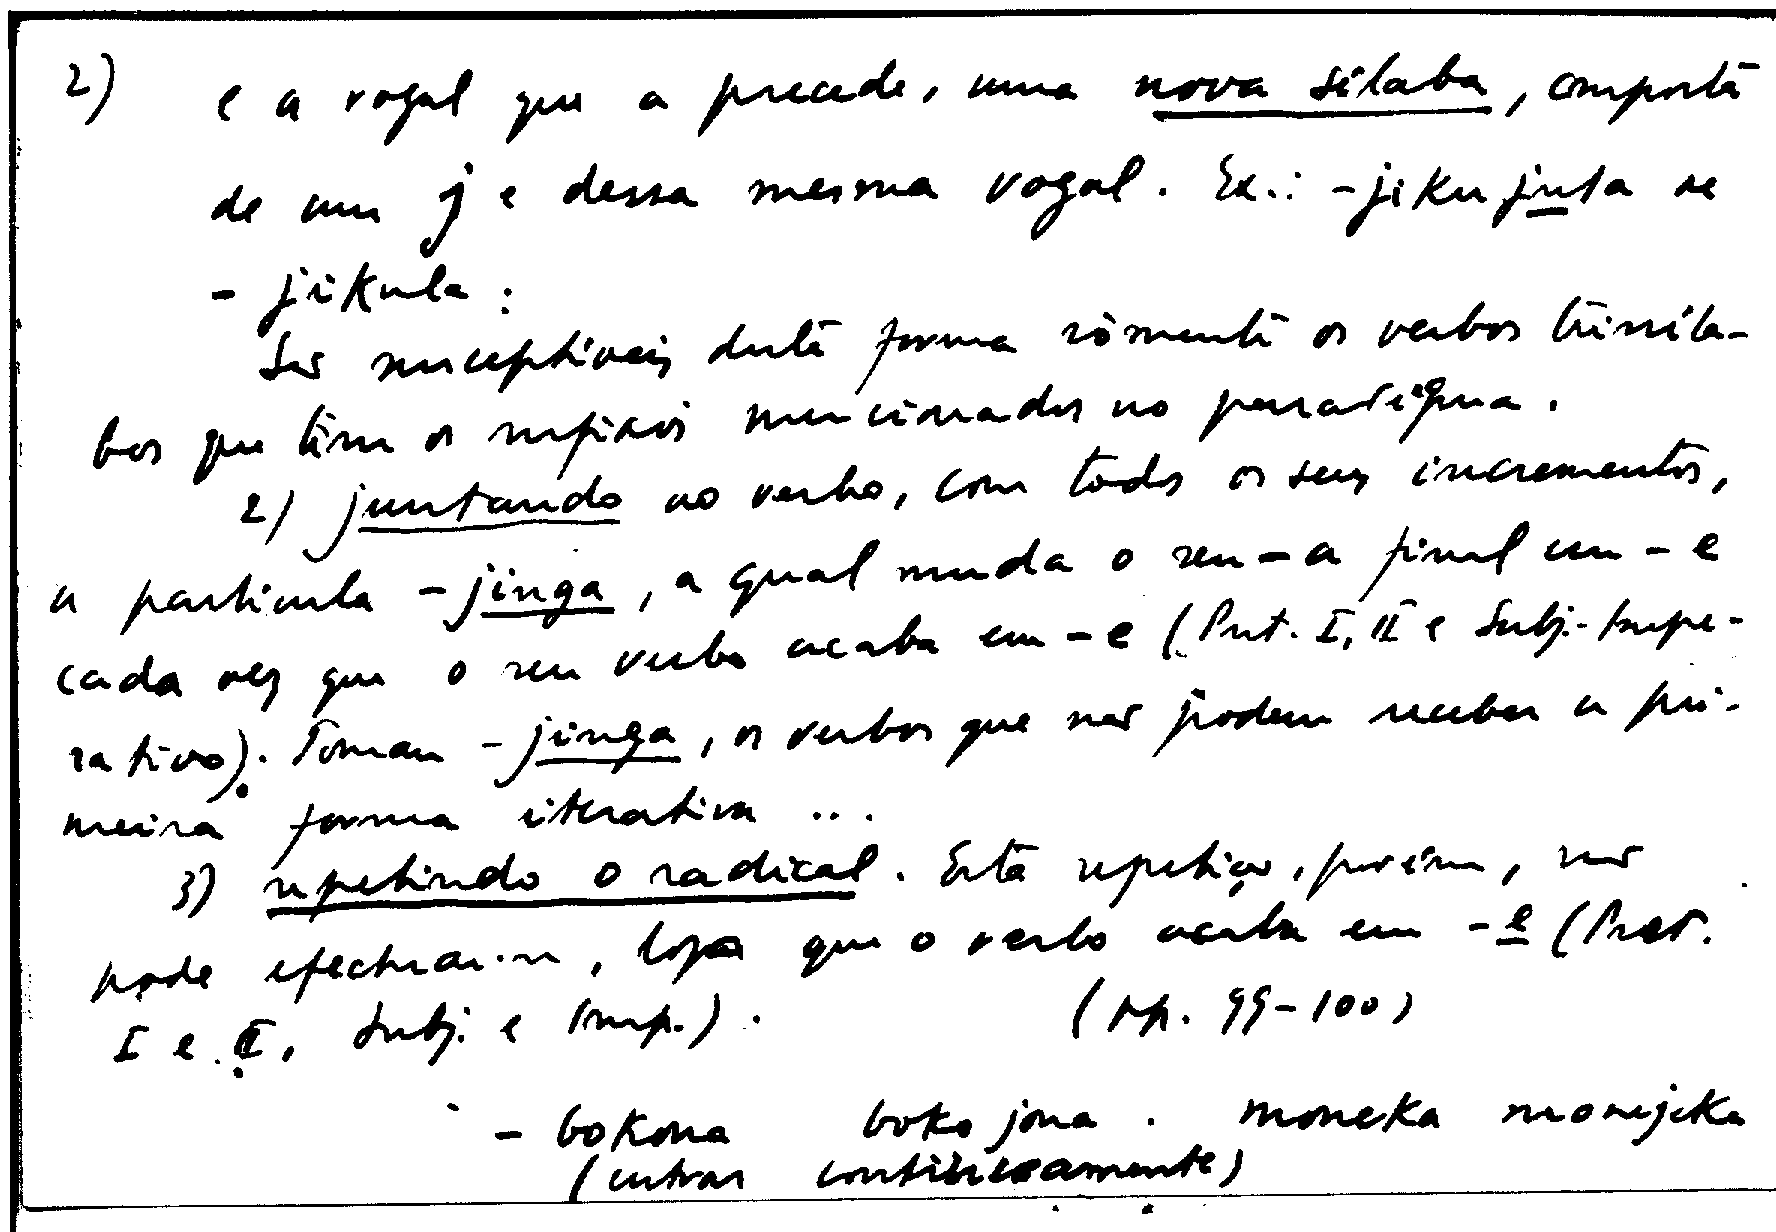 2) e a vogal que a precede, uma nova sílaba, composta
de um j e dessa mesma vogal. Ex.: -jikujuta de
- jikula.
São susceptíveis desta forma sòmente os verbos trissíla-
bos que têm os sufixos mencionados no paradigma.
2) juntando ao verbo, com todos os seus incrementos,
a partícula -jinga, a qual muda o seu -a final em -e
cada vez que o seu verbo acaba em -e (Pret. I, II e Subj.-Impe-
rativo). Tomam -jinga, os verbos que não podem receber a pri-
meira forma iterativa ...
3) repetindo o radical. Esta repetição, porém, não
pode efectuar-se, logo que o verbo acaba em -e (Pret.
I e II, Subj. e Imp.). (pp. 99-100)
- bokona bokojona. moneka monejeka
(entrar contìnuamente)